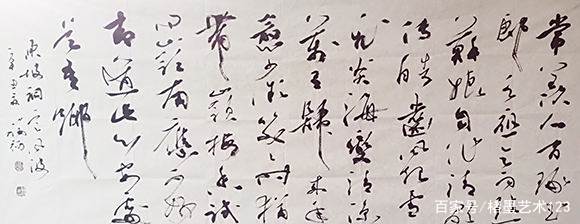 常羡人间琢玉
郎天应乞与点
酥娘自作清歌
传皓齿风起雪
飞炎海变清凉
万里归来年
愈少微笑笑时犹
带岭梅香试
问岭南应不好
却道此心安处
是吾乡
东坡词定风波
百家号/楮墨艺术123